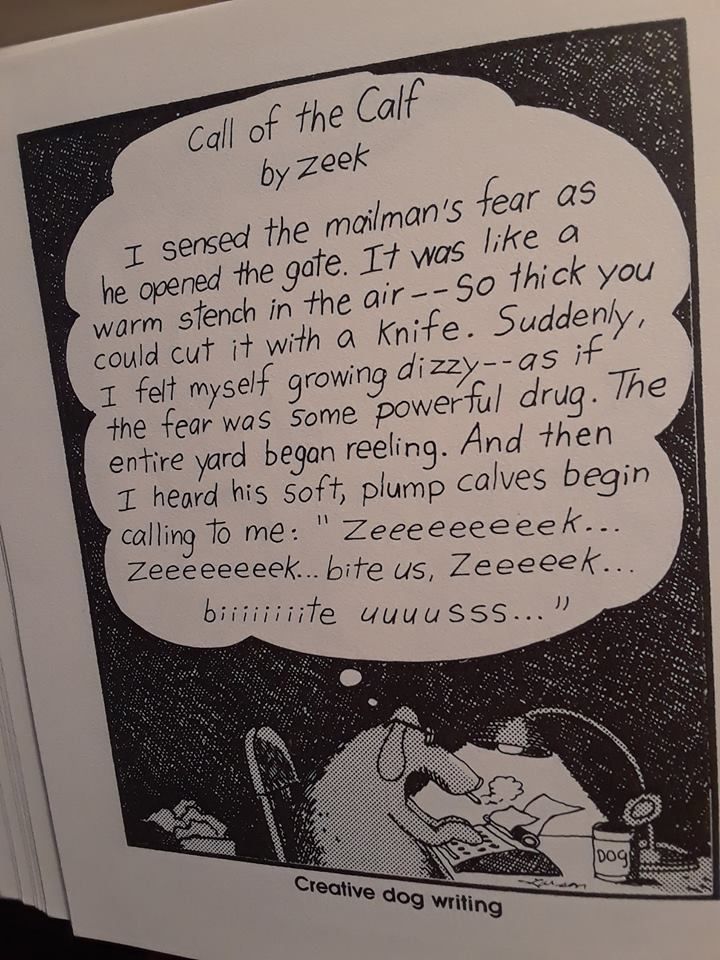 Call of the Calf
by Zeek
I sensed the mailman's fear as
he opened the gate. It was like a
warm stench in the air--So thick you
could cut it with a knife. Suddenly,
I felt myself growing dizzy--as if
the fear was some powerful drug. The
entire yard began reeling. And then
I heard his soft, plump calves begin
calling to me: "Zeeeeeeeeek...
Zeeeeeeeek... bite us, Zeeeeek...
biiiiiiiite uuuusss..."
DOG
Larson
Creative dog writing